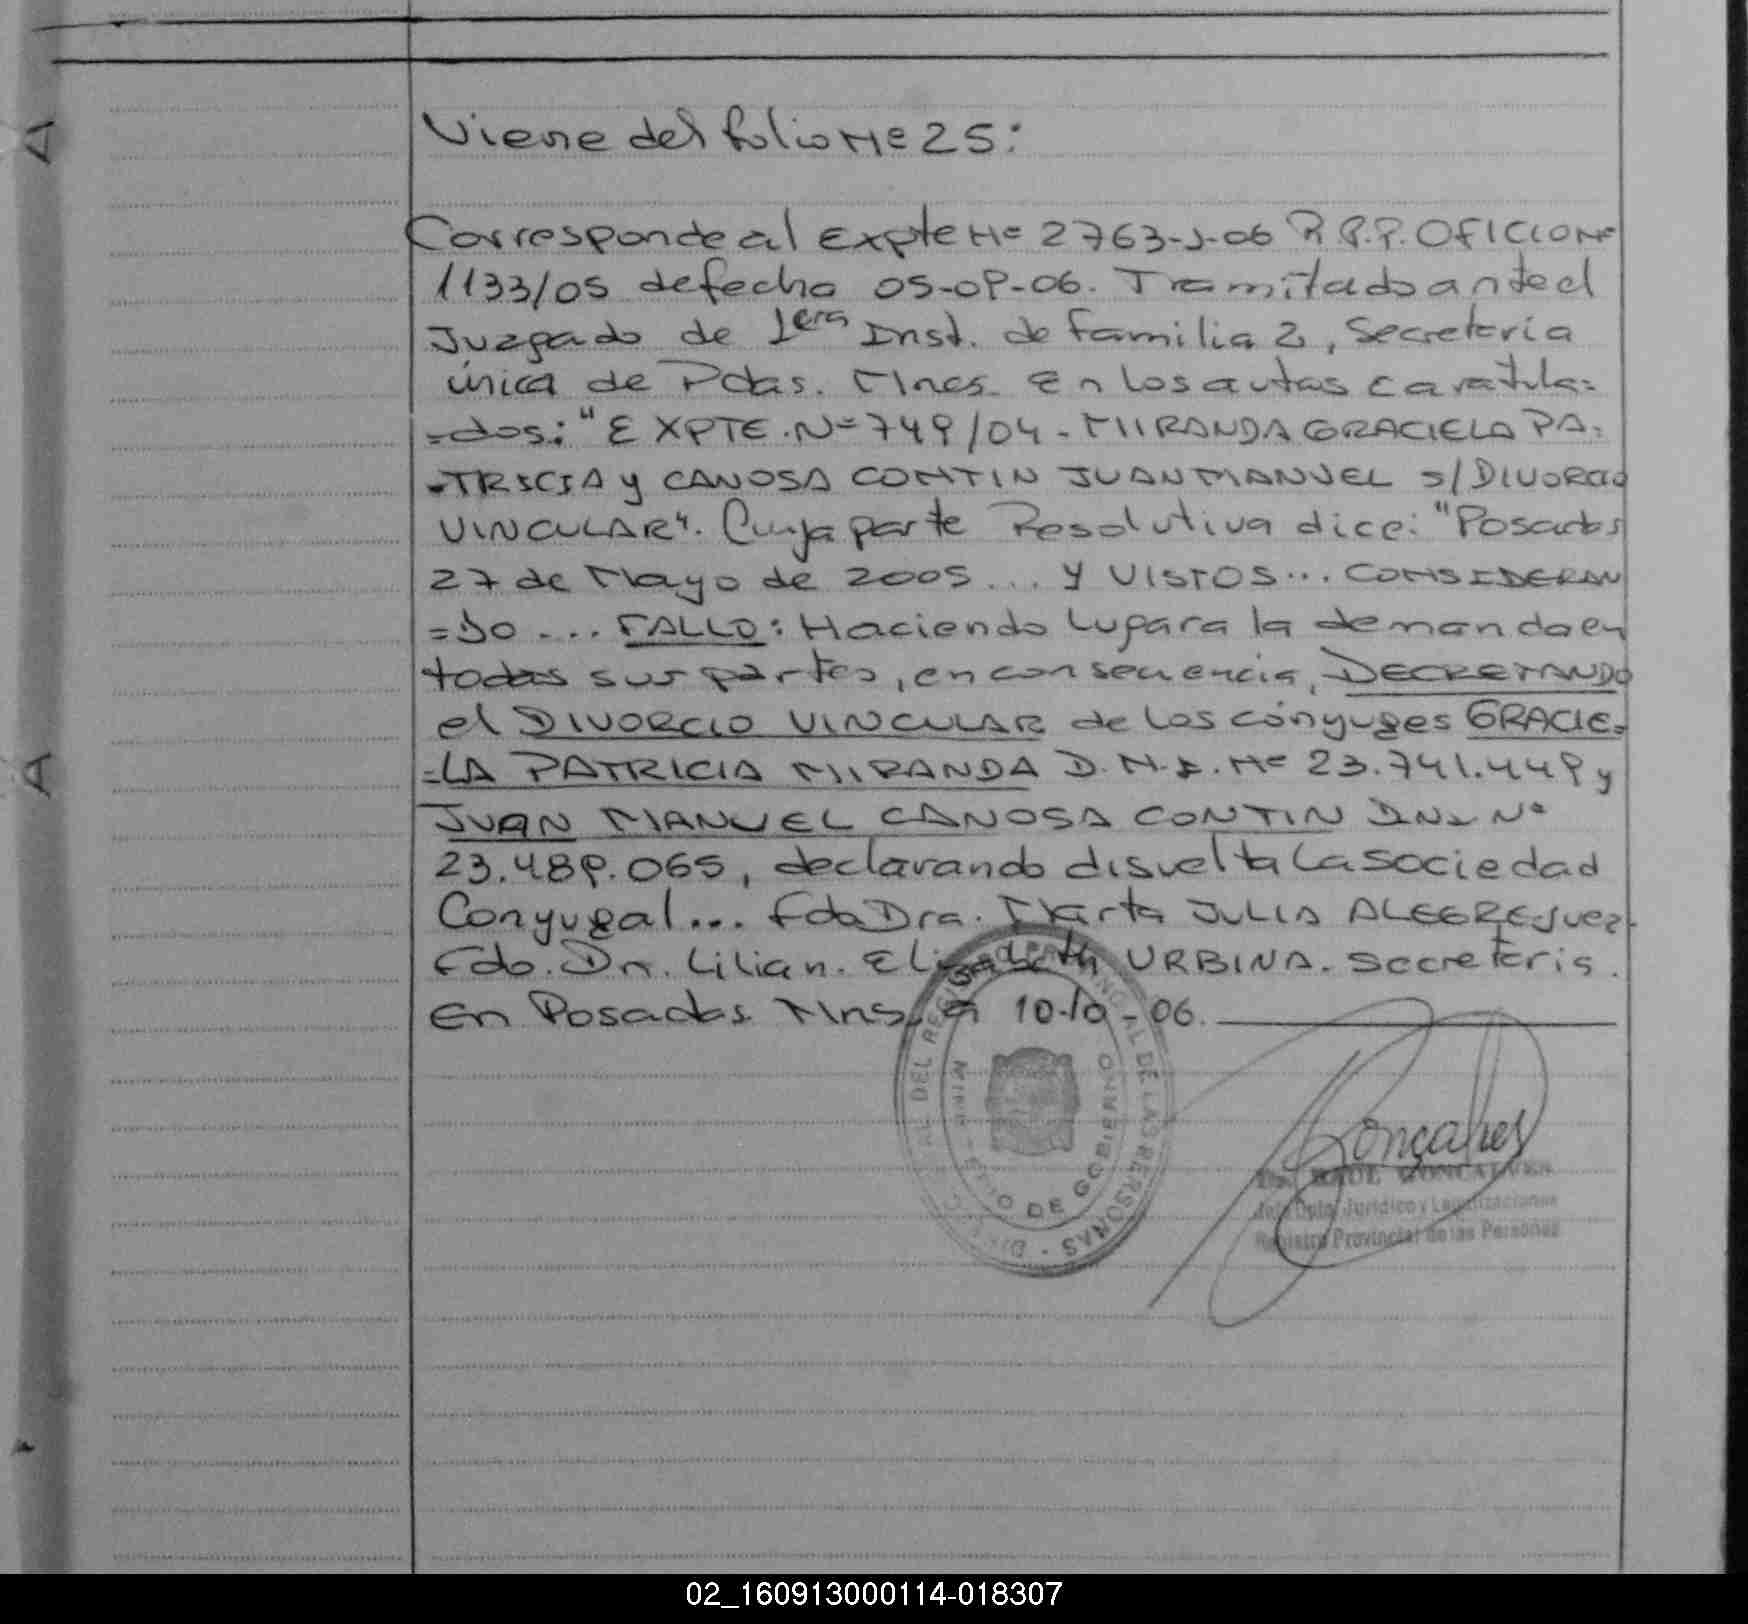 Viene del folio Nº 25:
Corresponde al Expte Nº 2763-J-06 R.P.P. OFICIO Nº
1133/05 de fecha 05-09-06. Tramitado ante el
Juzgado de 1era Inst. de familia 2, Secretaría
única de Pdas. Mnes. En los autos caratula=
=dos: "EXPTE. Nº 749/04 - MIRANDA GRACIELA PA=
=TRICIA y CANOSA CONTIN JUAN MANUEL s/DIVORCIO
VINCULAR". Cuya parte Resolutiva dice: "Posadas
27 de Mayo de 2005... Y VISTOS... CONSIDERAN
=DO .... FALLO: Haciendo lugar a la demanda en
todas sus partes, en consecuencia, DECRETANDO
el DIVORCIO VINCULAR de los cónyuges GRACIE=
=LA PATRICIA MIRANDA D.N.I. Nº 23.741.449 y
JUAN MANUEL CANOSA CONTIN DNI Nº
23.489.065, declarando disuelta la sociedad
Conyugal... Fdo Dra. Marta JULIA ALEGRE Juez.
Fdo. Dra. Lilian. Elizabeth URBINA. Secretaria.
En Posadas Mns, a 10-10-06.
DEL REGISTRO PROVINCIAL DE LAS PERSONAS
MINISTERIO DE GOBIERNO
Gonçalves
GONCALVES
Jefe Dpto. Jurídico y Legalizaciones
Registro Provincial de las Personas
A
A
02_160913000114-018307